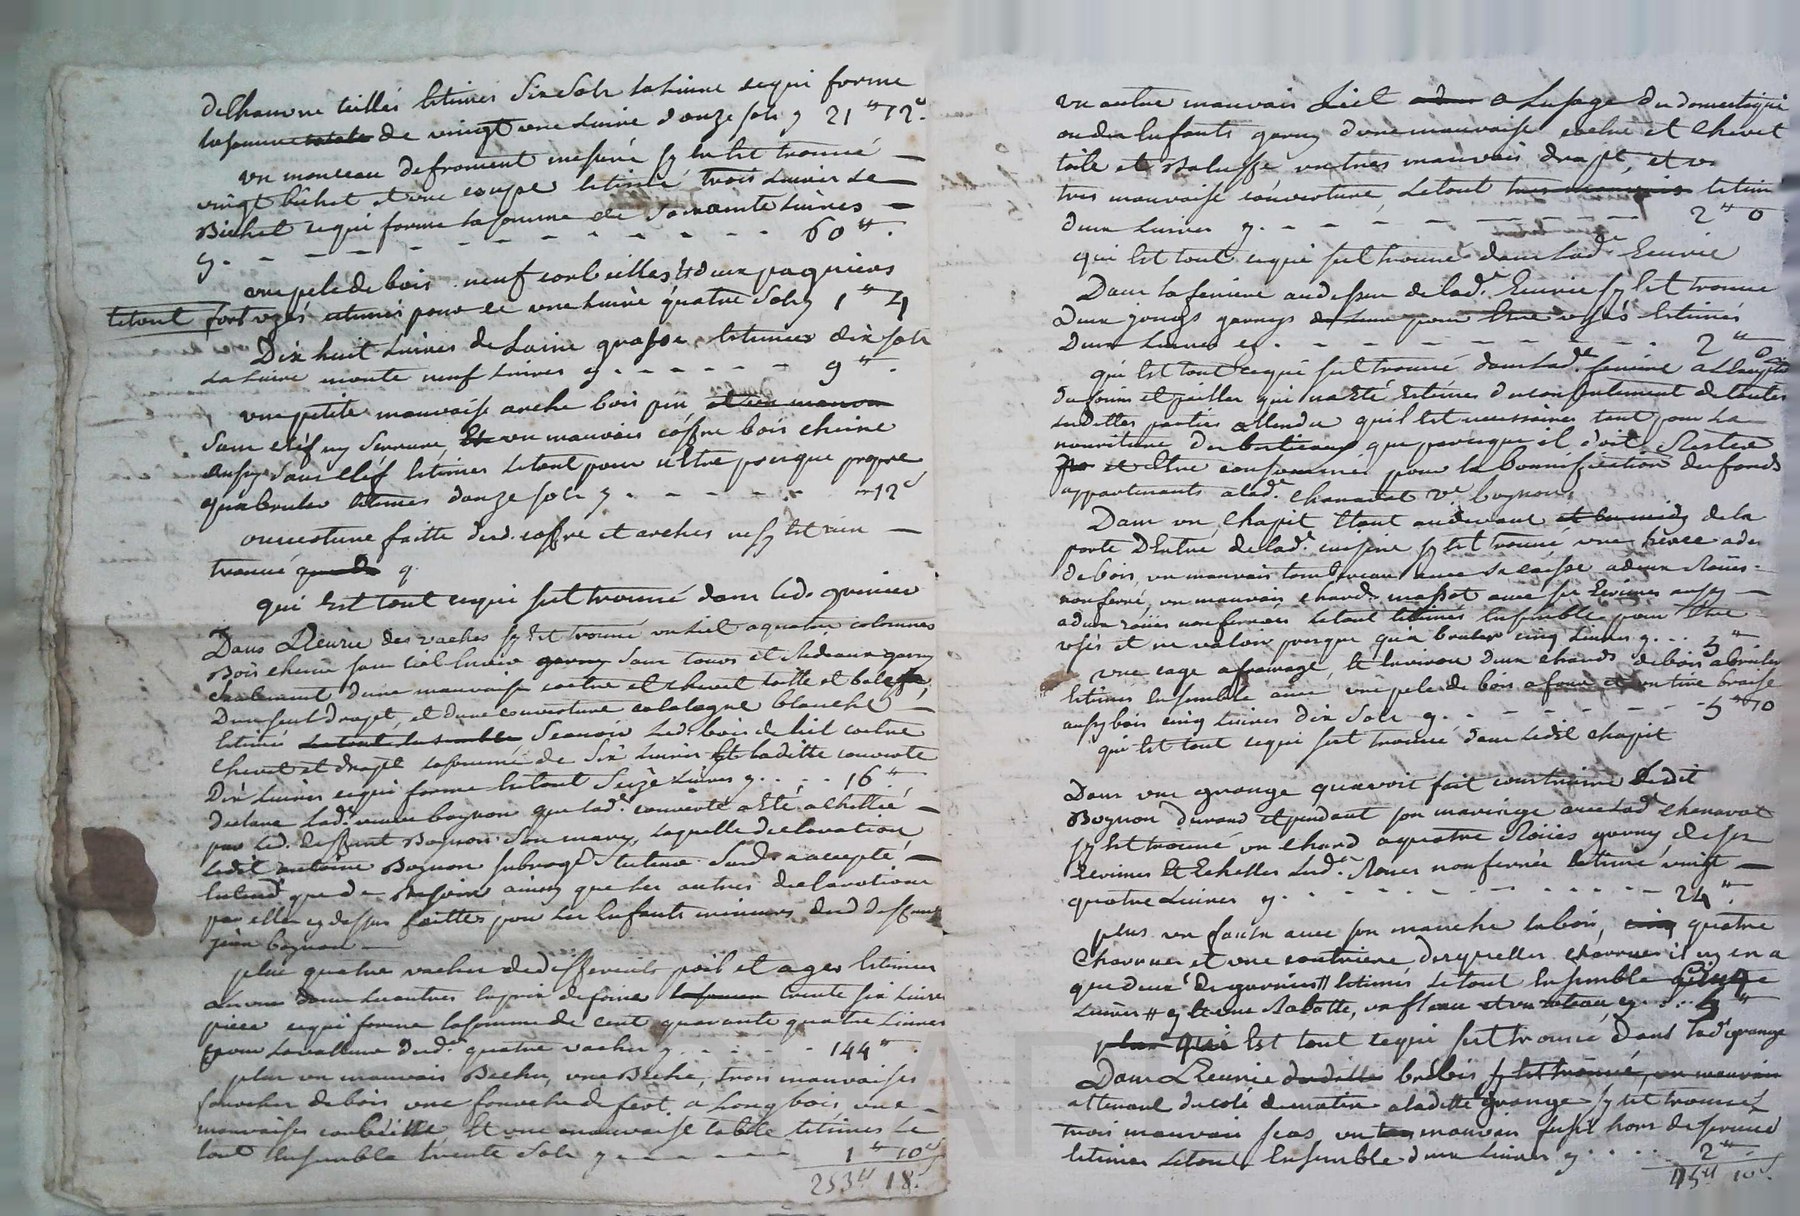 de Chanvre teilliés Estimés Six Sols la Livre ce qui forme
la somme totale de vingt une Livre douze sols y 21 " 12 s
un monceau de froment mesuré sy est trouvé
vingt bichet et une coupe Estimé trois Livres Le
Bichet ce qui forme la somme de Soixante Livres
y. - - - - - - 60 " .
une pele de bois neuf corbeilles et deux paquiers
le tout fort uzés estimés pour ce une Livre quatre Sols y 1 " 4
Dix huit Livres de Laine grasse Estimées dix sols
La Livre monte neuf Livres y - - - - - 9 " .
une petite mauvaise arche bois pin et un mauva
Sans clef ny Serrure, Et un mauvais coffre bois chêne
aussy Sans Clef Estimés Le tout pour n'être presque propre
qu'a bruler Estimés douze sols y - - - - - " 12 s
ouverture faitte desd. coffre et arches ne sy est rien
trouvé y.
qui Est tout ce qui sest trouvé dans led. grenier
Dans L'Ecurie des vaches sy est trouvé un liel a quatre colonnes
Bois chene sans ciel garny Sans tours et Rideaux garny
seulement d'une mauvaise coetre et chevet toille et baleffe,
D'un seul drapt, et d'une couverture catalogne blanche
Estimé Le tout Ensemble Scavoir Led. bois de liel coetre
chevet et drapt la somme de Six Livres Et laditte couverte
Dix Livres ce qui forme Le tout Seize Livres y - - - 16 "
Declare lad. veuve bognon que lad. couverte a Eté achettée
par led. deffunt Bognon Son mary, laquelle declaration
ledit antoine Bognon subrogé tuteur Susd. a accepté
Entend que de Reserve ainsy que les autres declarations
par elle cy dessus faittes pour les Enfants mineurs dud deffunt
jean bognon
plus quatre vaches de differents poil et ages Estimées
Les unes dans Les autres le prix de foires la somme trente six Livres
piece ce qui forme la somme de cent quarante quatre Livres
pour la valleur desd. quatre vaches y - - - - - 144 "
plus un mauvais Bechu, une Beche, trois mauvaises
fourches de bois une fourche de fert, a Long bois, une
mauvaise corbeille Et une mauvaise table Estimés Le
tout Ensemble trente Sols y - - - - - 1 " 10 s
253 " 18.
un autre mauvais Liel a Lusage du domestique
ou des Enfants garny d'une mauvaise coetre et chevet
toile et Baleffe un tres mauvais drapt, et un
tres mauvaise couverture, Le tout tres mauvais Estimé
deux Livres y. - - - - - - 2 " 0
qui Est tout ce qui sest trouvé dans lad. Ecurie
Dans la feniere au dessus de lad. Ecurie sy Est trouvé
Deux jougs garnys pour Etre uzés Estimés
Deux Livres cy. - - - - - - 2 " 0
qui Est tout ce qui sest trouvé dans lad. feniere
du foins et pailles qui na Eté Estimés du consentement de toutes
lesdittes parties attendu quil Est necessaire tant pour La
nourriture des bestiaux que parceque il doit Rester
Et Etre consommés pour la bonnification des fonds
appartenants a lad. Chanavat ve. bognon
Dans un Chapit Etant au devant de la
porte d'Entré de lad. cuisine sy Est trouvé une herce a de
de bois, un mauvais tombereau avec sa caisse a deux Roües
non ferré, un mauvais chard avec ses Ecrines aussy
a deux roües non ferrées Le tout Estimés Ensemble pour Etre
uzés et ne valoir presque qu'a bruler cinq Livres y. . . 5 "
une cage a fromage, Et Environ deux chards de bois a bruler
Estimés Ensemble avec une pele de bois a four et un tire braise
aussy bois cinq Livres dix Sols y - - - - - 5 " 10
qui Est tout ce qui sest trouvé dans Ledit chapit
Dans une grange qu'avoit fait construire Ledit
Bognon durand et pendant son mariage avec lad. chenavat
sy Est trouvé un chard a quatre Roües garny de ses
Ecrines Et Echelles Lesd. Roües non ferrées Estimé vingt
quatre Livres y. - - - - - - 24 "
plus un faulx avec son manche Enbois, cinq quatre
Charrues et une coutriere desquelles charrues il ny en a
que deux de garnies Estimés Le tout Ensemble
Livres y Et une Rabatte, un fleau et un rateau, y . . .
plus qui Est tout ce qui sest trouvé Dans lad. grange
Dans L'Ecurie desdittes brebis sy Est trouvé, un mauvais
attenant du coté de matin a laditte grange sy Est trouvés
trois mauvais seas, un mauvais fusil hors de service
Estimés Le tout Ensemble deux Livres y . . . . 2 "
45 " 10 s.